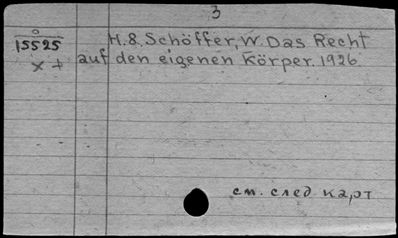 3
O
15525
x +
H. 8, Schöffer, W. Das Recht
auf den eigenen Körper. 1926.
см. след карт